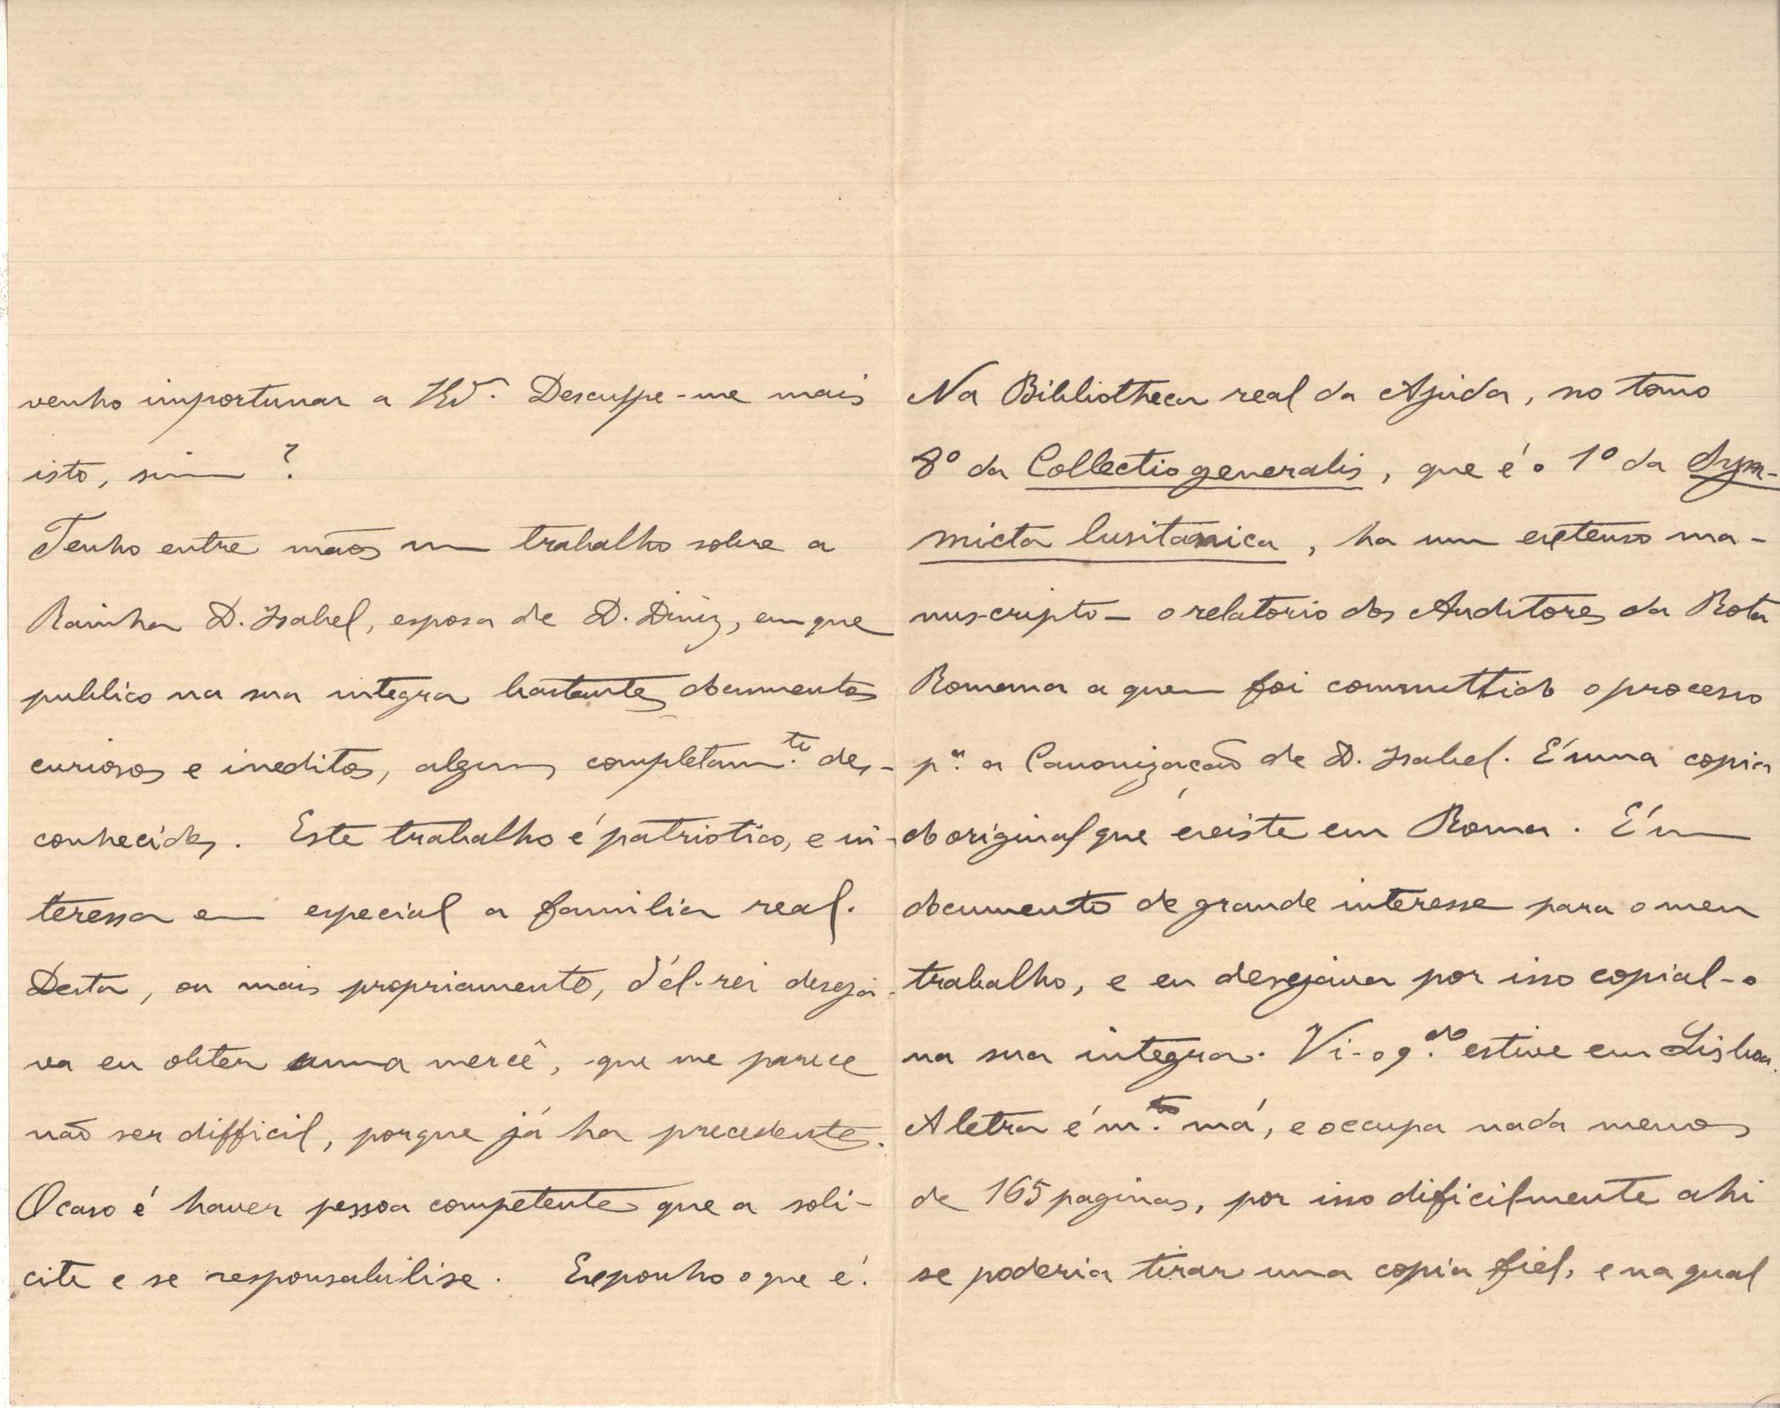 venho importunar a V. Desculpe-me mais
isto, sim ?
Tenho entre mãos um trabalho sobre a
Rainha D. Isabel, esposa de D. Diniz, em que
publico na sua integra bastantes documentos
curiosos e ineditos, alguns completam.te des-
conhecidos. Este trabalho é patriotico, e in-
teressa em especial a familia real.
Desta, ou mais propriamente, d'él-rei deseja-
va eu obter uma mercê, que me parece
não ser difficil, porque já ha precedentes.
O caso é haver pessoa competente que a soli-
cite e se responsabilise. Exponho o que é.
Na Bibliotheca real da Ajuda, no tomo
8º da Collectio generalis, que é o 1º da Sym-
micta lusitanica, ha um extenso ma-
nuscripto - o relatorio dos Auditores da Rota
Romana a quem foi committido o processo
p.ª a Canonização de D. Isabel. É uma copia
do original que existe em Roma. É um
documento de grande interesse para o meu
trabalho, e eu desejava por isso copial-o
na sua integra. Vi-o q.do estive em Lisboa.
A letra é m.to má, e occupa nada menos
de 165 paginas, por isso dificilmente ahi
se poderia tirar uma copia fiel, e na qual